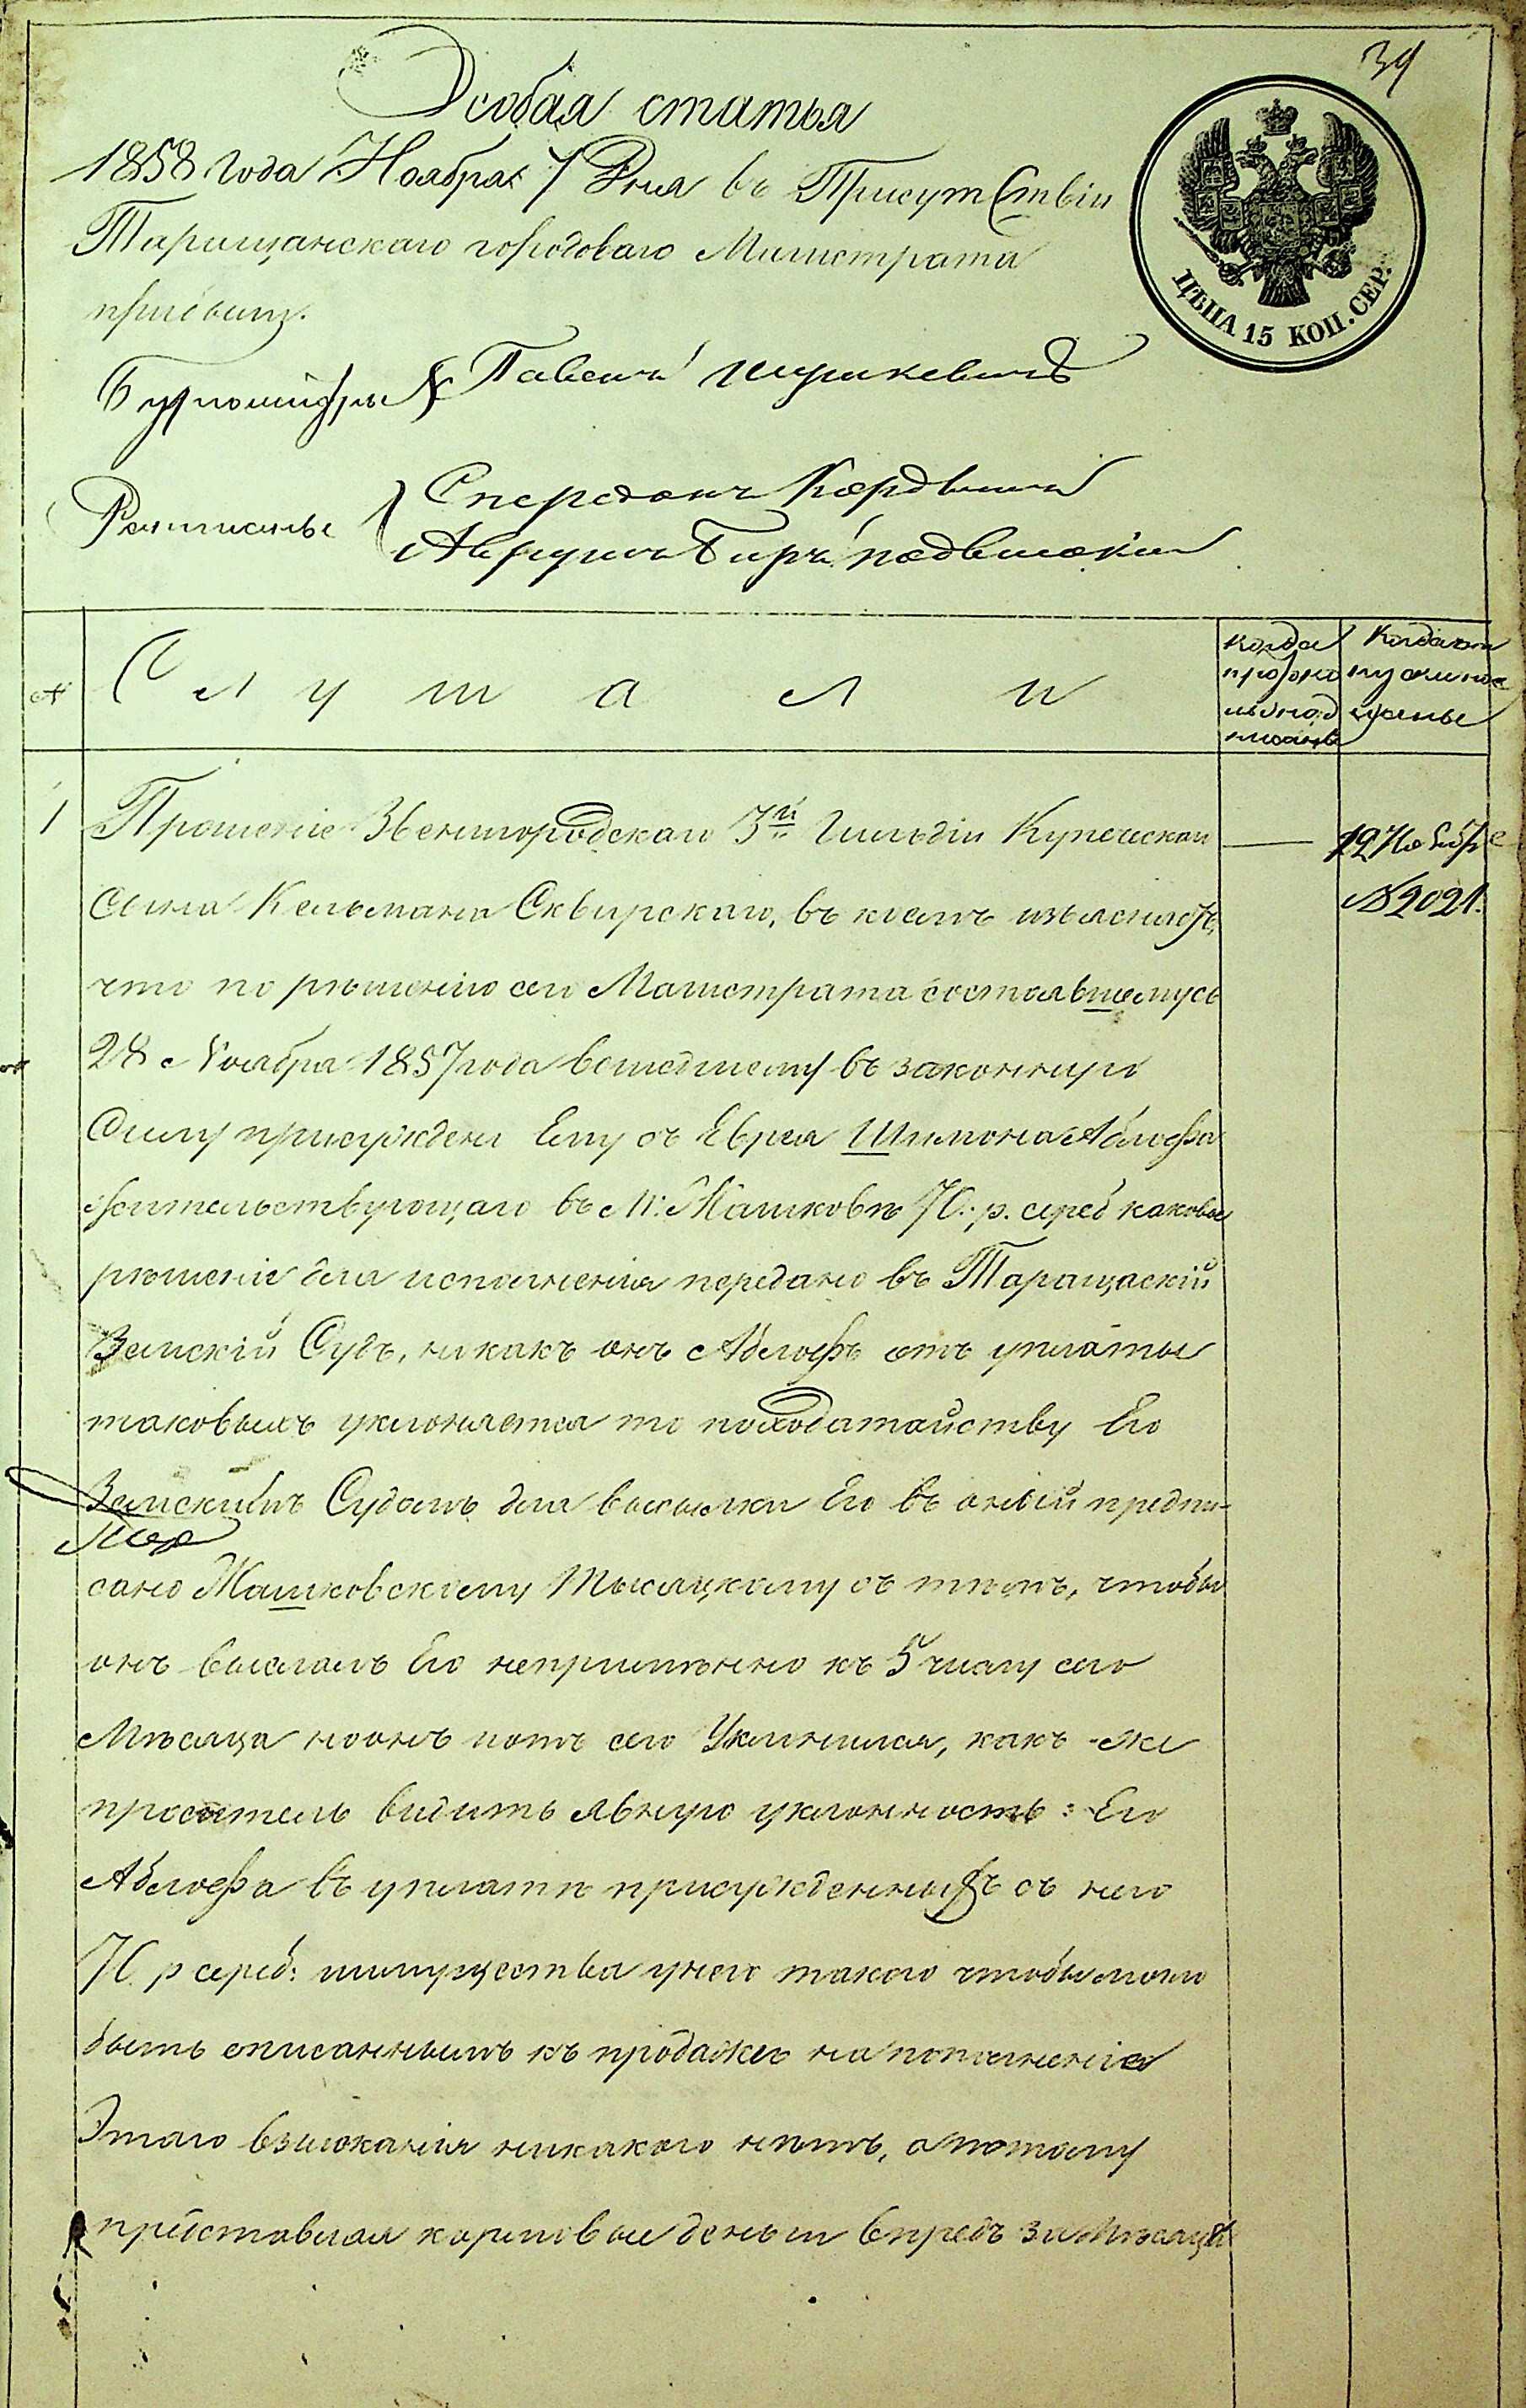 39
Особая статья
1858 года Ноября 7 Дня въ Присутствіи
Таращанскаго городоваго Магистрата
ЦѢНА 15 КОП. СЕР.
Бургомистръ Павелъ
Ратманы
Слушали
Когда
1 Прошеніе Звенигородскаго 3й Гильдіи Купеческаго
12 Ноября
№ 2021.
сына Кельмана Сквирскаго, въ коемъ изъяснилъ,
что по рѣшенію сего Магистрата состоявшемуся
28 Ноября 1857 года вошедшему въ законную
Силу присуждено Ему съ Еврея Шимона Аблофа
жительствующаго въ М: Жашковѣ 70. р. сереб каковое
рѣшеніе для исполненія передано въ Таращаскій
Земскій Судъ, но какъ онъ Аблофъ отъ уплаты
таковыхъ уклоняется то по ходатайству Его
Земскимъ Судомъ для высылки Его въ оный предпи-
сано Жашковскому Тысяцкому съ тѣмъ, чтобы
онъ выслалъ Его непримѣнно къ 5 числу сего
Мѣсяца но онъ и отъ сего Уклонился, какъ же
проситель видитъ явную уклонность Его
Аблофа въ уплатѣ присужденныхъ съ него
70. р сереб: имущества у него такого чтобы могло
быть описаннымъ къ продажѣ на пополненіе
Этаго взысканія никакого нѣтъ, а потому
представляя кормовые деньги впредъ за Мѣсяцъ